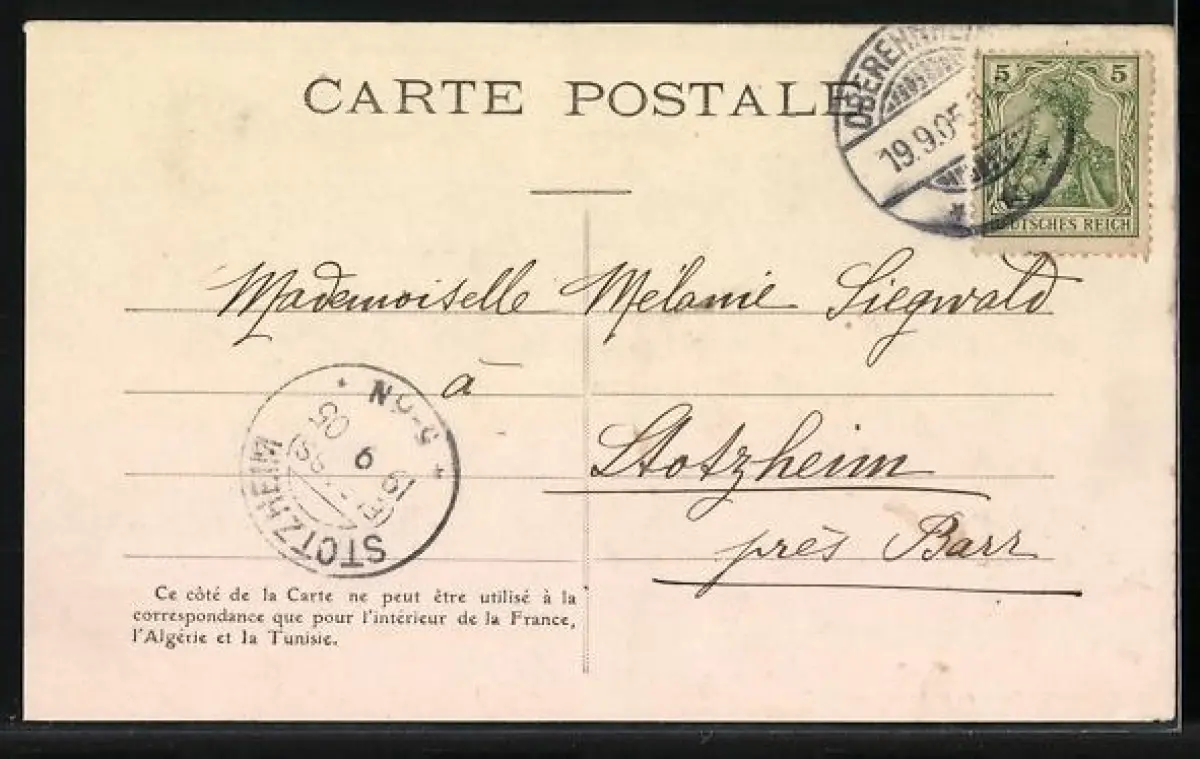 CARTE POSTALE
19.9.05
5 5
DEUTSCHES REICH
Mademoiselle Mélanie Siegwald
à
Stotzheim
près Barr
STOTZHEIM
19 9 05
5-6N
Ce côté de la Carte ne peut être utilisé à la
correspondance que pour l'intérieur de la France,
l'Algérie et la Tunisie.